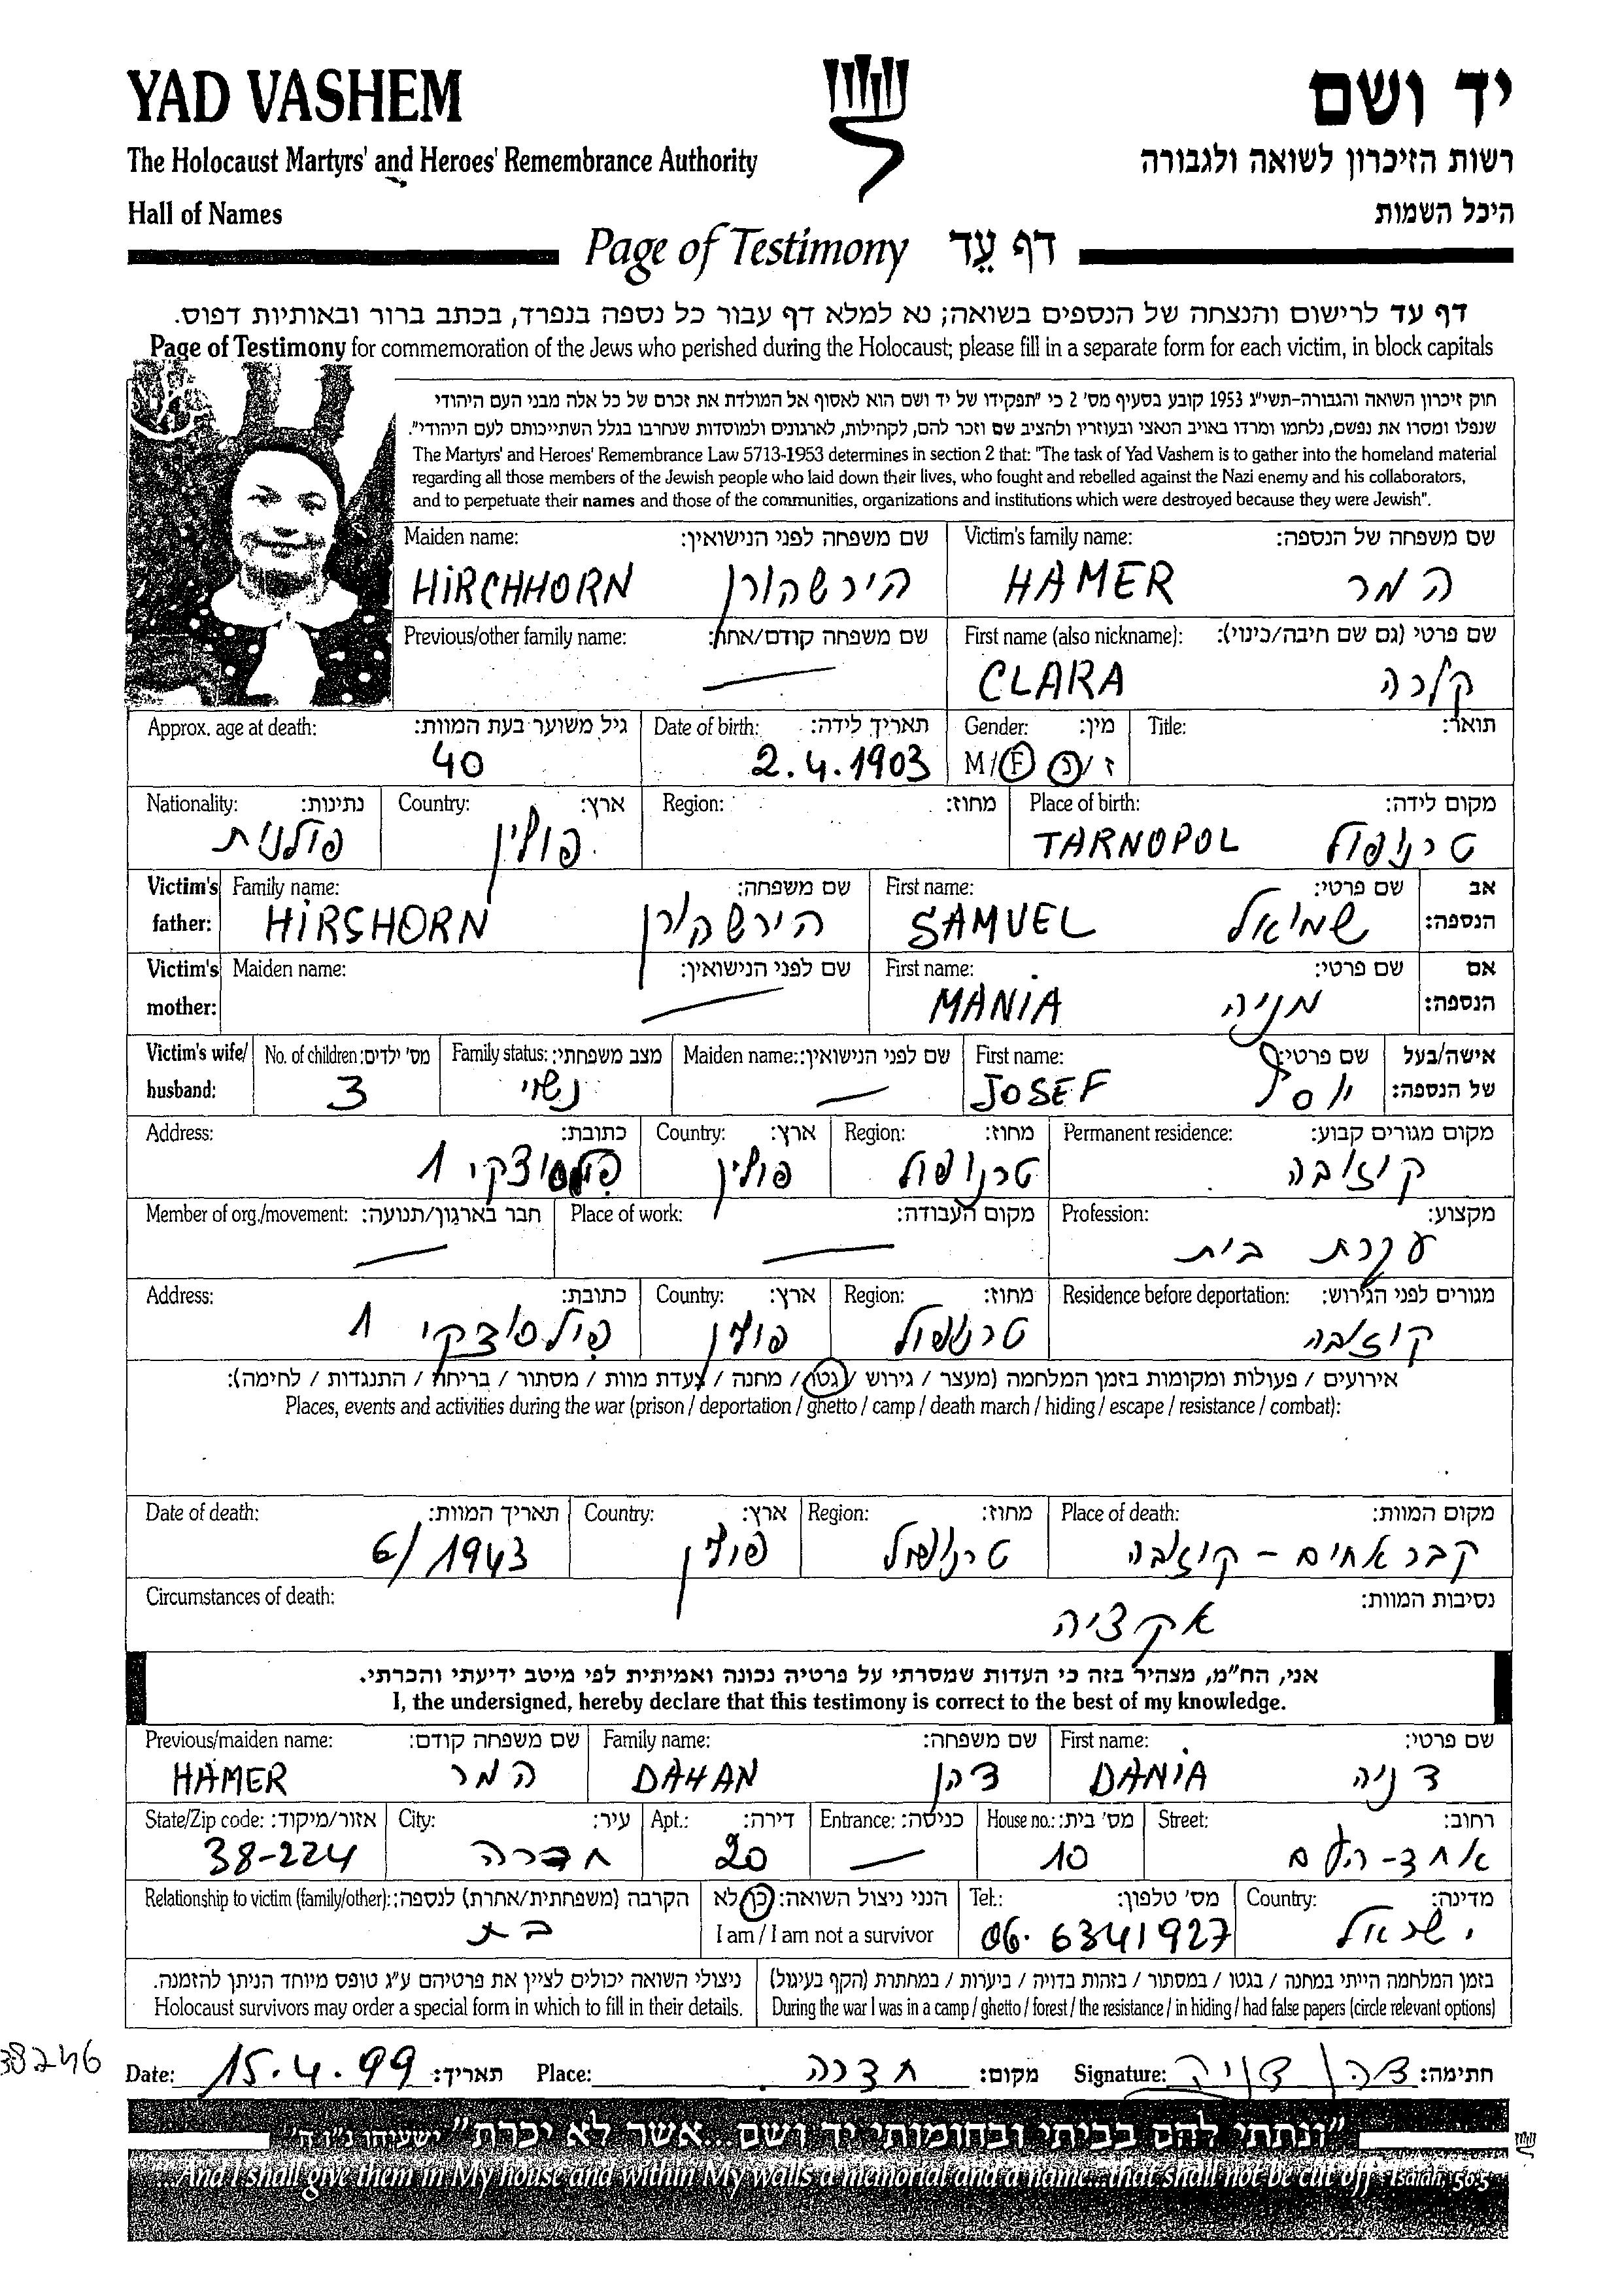 YAD VASHEM
יד ושם
The Holocaust Martyrs' and Heroes' Remembrance Authority
רשות הזיכרון לשואה ולגבורה
Hall of Names
היכל השמות
Page of Testimony דף עֵד
דף עד לרישום והנצחה של הנספים בשואה; נא למלא דף עבור כל נספה בנפרד, בכתב ברור ובאותיות דפוס.
Page of Testimony for commemoration of the Jews who perished during the Holocaust; please fill in a separate form for each victim, in block capitals
חוק זיכרון השואה והגבורה-תשי"ג 1953 קובע בסעיף מס' 2 כי "תפקידו של יד ושם הוא לאסוף אל המולדת את זכרם של כל אלה מבני העם היהודי
שנפלו ומסרו את נפשם, נלחמו ומרדו באויב הנאצי ובעוזריו ולהציב שם וזכר להם, לקהילות, לארגונים ולמוסדות שנחרבו בגלל השתייכותם לעם היהודי".
The Martyrs' and Heroes' Remembrance Law 5713-1953 determines in section 2 that: "The task of Yad Vashem is to gather into the homeland material
regarding all those members of the Jewish people who laid down their lives, who fought and rebelled against the Nazi enemy and his collaborators,
and to perpetuate their names and those of the communities, organizations and institutions which were destroyed because they were Jewish".
Maiden name: שם משפחה לפני הנישואין: Victim's family name: שם משפחה של הנספה:
HIRCHHORN הירשהורן HAMER המר
Previous/other family name: שם משפחה קודם/אחר: First name (also nickname): שם פרטי (גם שם חיבה/כינוי):
CLARA קלרה
Approx. age at death: גיל משוער בעת המוות: Date of birth: תאריך לידה: Gender: מין: Title: תואר:
40 2.4.1903 M/F נ/ז
Nationality: נתינות: Country: ארץ: Region: מחוז: Place of birth: מקום לידה:
פולנית פולין TARNOPOL טרנופול
Victim's Family name: שם משפחה: First name: שם פרטי: אב
father: HIRSHORN הירשהורן SAMUEL שמואל הנספה:
Victim's Maiden name: שם לפני הנישואין: First name: שם פרטי: אם
mother: MANIA מניה הנספה:
Victim's wife/ No. of children: מס' ילדים: Family status: מצב משפחתי: Maiden name: שם לפני הנישואין: First name: שם פרטי: אישה/בעל
husband: 3 נשוי JOSEF יוסף של הנספה:
Address: כתובת: Country: ארץ: Region: מחוז: Permanent residence: מקום מגורים קבוע:
פילסוצקי 1 פולין טרנופול קוזובה
Member of org./movement: חבר בארגון/תנועה: Place of work: מקום העבודה: Profession: מקצוע:
עקרת בית
Address: כתובת: Country: ארץ: Region: מחוז: Residence before deportation: מגורים לפני הגירוש:
פילסוצקי 1 פולין טרנופול קוזובה
אירועים / פעולות ומקומות בזמן המלחמה (מעצר / גירוש / גטו / מחנה / צעדת מוות / מסתור / בריחה / התנגדות / לחימה):
Places, events and activities during the war (prison / deportation / ghetto / camp / death march / hiding / escape / resistance / combat):
Date of death: תאריך המוות: Country: ארץ: Region: מחוז: Place of death: מקום המוות:
6/1943 פולין טרנופול קבר אחים - קוזובה
Circumstances of death: נסיבות המוות:
אקציה
אני, הח"מ, מצהיר בזה כי העדות שמסרתי על פרטיה נכונה ואמיתית לפי מיטב ידיעתי והכרתי.
I, the undersigned, hereby declare that this testimony is correct to the best of my knowledge.
Previous/maiden name: שם משפחה קודם: Family name: שם משפחה: First name: שם פרטי:
HAMER המר DAHAN דהן DANIA דניה
State/Zip code: אזור/מיקוד: City: עיר: Apt.: דירה: Entrance: כניסה: House no.: מס' בית: Street: רחוב:
38-224 חדרה 20 10 אחד-העם
Relationship to victim (family/other): הקרבה (משפחתית/אחרת) לנספה: הנני ניצול השואה: כן/לא Tel.: מס' טלפון: Country: מדינה:
בת I am / I am not a survivor 06. 6341927 ישראל
ניצולי השואה יכולים לציין את פרטיהם ע"ג טופס מיוחד הניתן להזמנה. בזמן המלחמה הייתי במחנה / בגטו / במסתור / בזהות בדויה / ביערות / במחתרת (הקף בעיגול)
Holocaust survivors may order a special form in which to fill in their details. During the war I was in a camp / ghetto / forest / the resistance / in hiding / had false papers (circle relevant options)
38246
Date: 15.4.99 תאריך: Place: חדרה מקום: Signature: דהן דניה חתימה:
"ונתתי להם בביתי ובחומותי יד ושם...אשר לא יכרת" ישעיהו נ"ו ה'
...And I shall give them in My house and within My walls a memorial and a name...that shall not be cut off - Isaiah, 56:5